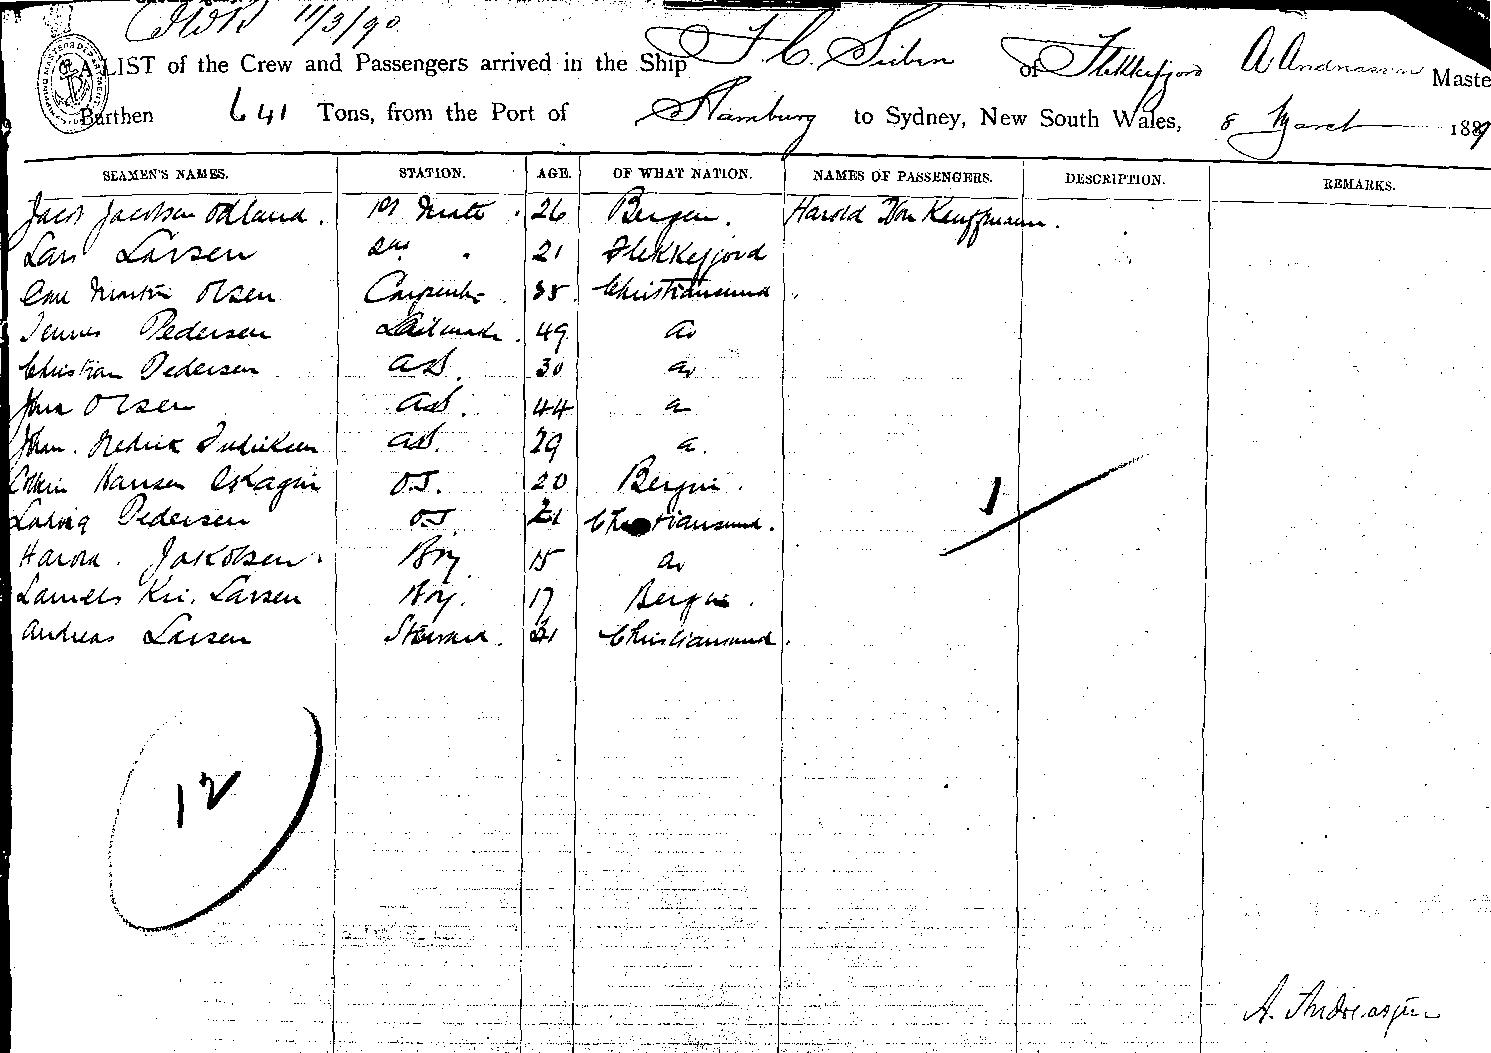 11/3/90
A LIST of the Crew and Passengers arrived in the Ship F. C. Sieben of Flekkefjord A Andreassen Maste
Burthen 641 Tons, from the Port of Hamburg to Sydney, New South Wales, 8 March 1889
SEAMEN'S NAMES. STATION. AGE. OF WHAT NATION. NAMES OF PASSENGERS. DESCRIPTION. REMARKS.
Jacob Jacobsen Odland. 1st Mate. 26 Bergen. Harold Von Kauffmann.
Lars Larsen 2nd . 21 Flekkefjord
Martin Olsen Carpenter. 38. Christiansund.
Pedersen Sailmaker. 49
Christian Pedersen AB. 30
Olsen AB. 44
Johan. Fredrik Fredriksen AB. 29
Hansen O.S. 20 Bergen.
Ludvig Pedersen O.S 21 Christiansund.
Harold. Jakobsen. Boy. 15
Kri. Larsen Boy. 17 Bergen.
Andreas Larsen Steward. 21 Christiansund.
1
12
A. Andreassen